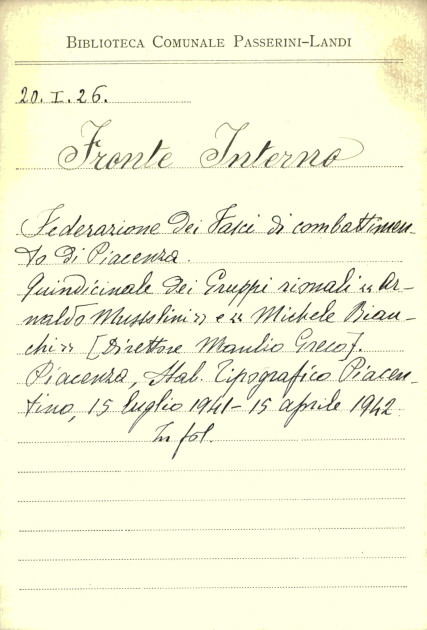 BIBLIOTECA COMUNALE PASSERINI-LANDI
20. I. 26.
Fronte Interno
Federazione dei Fasci di combattimen-
to di Piacenza.
Quindicinale dei Gruppi rionali « Ar-
naldo Mussolini » e « Michele Bian-
chi » [Direttore Manlio Greco].
Piacenza, Stab. Tipografico Piacen-
tino, 15 luglio 1941 - 15 aprile 1942.
In fol.